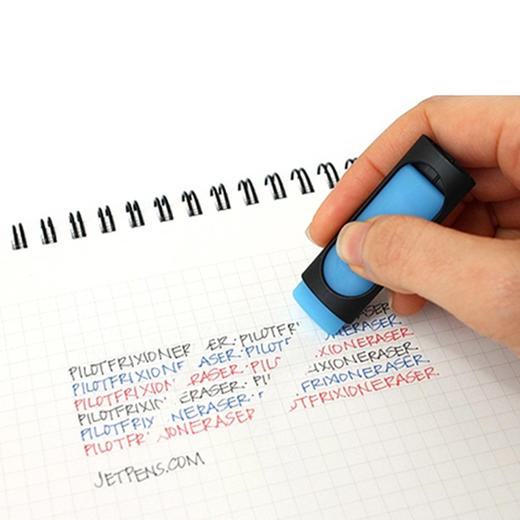 PILOTFRIXIONER ER. PILOTFR ERASER.
PILOTFRIXION ASER. PILOT ERASER.
PILOTFRIXION ERASER. PIL XIONERASER.
PILOTFRIXIN ERASER. PI IXIONERASER.
PILOTFRIX NERASER FRIXIONERASER.
PILOTFR IONERASER OTFRIXIONERASER.
JETPENS.COM